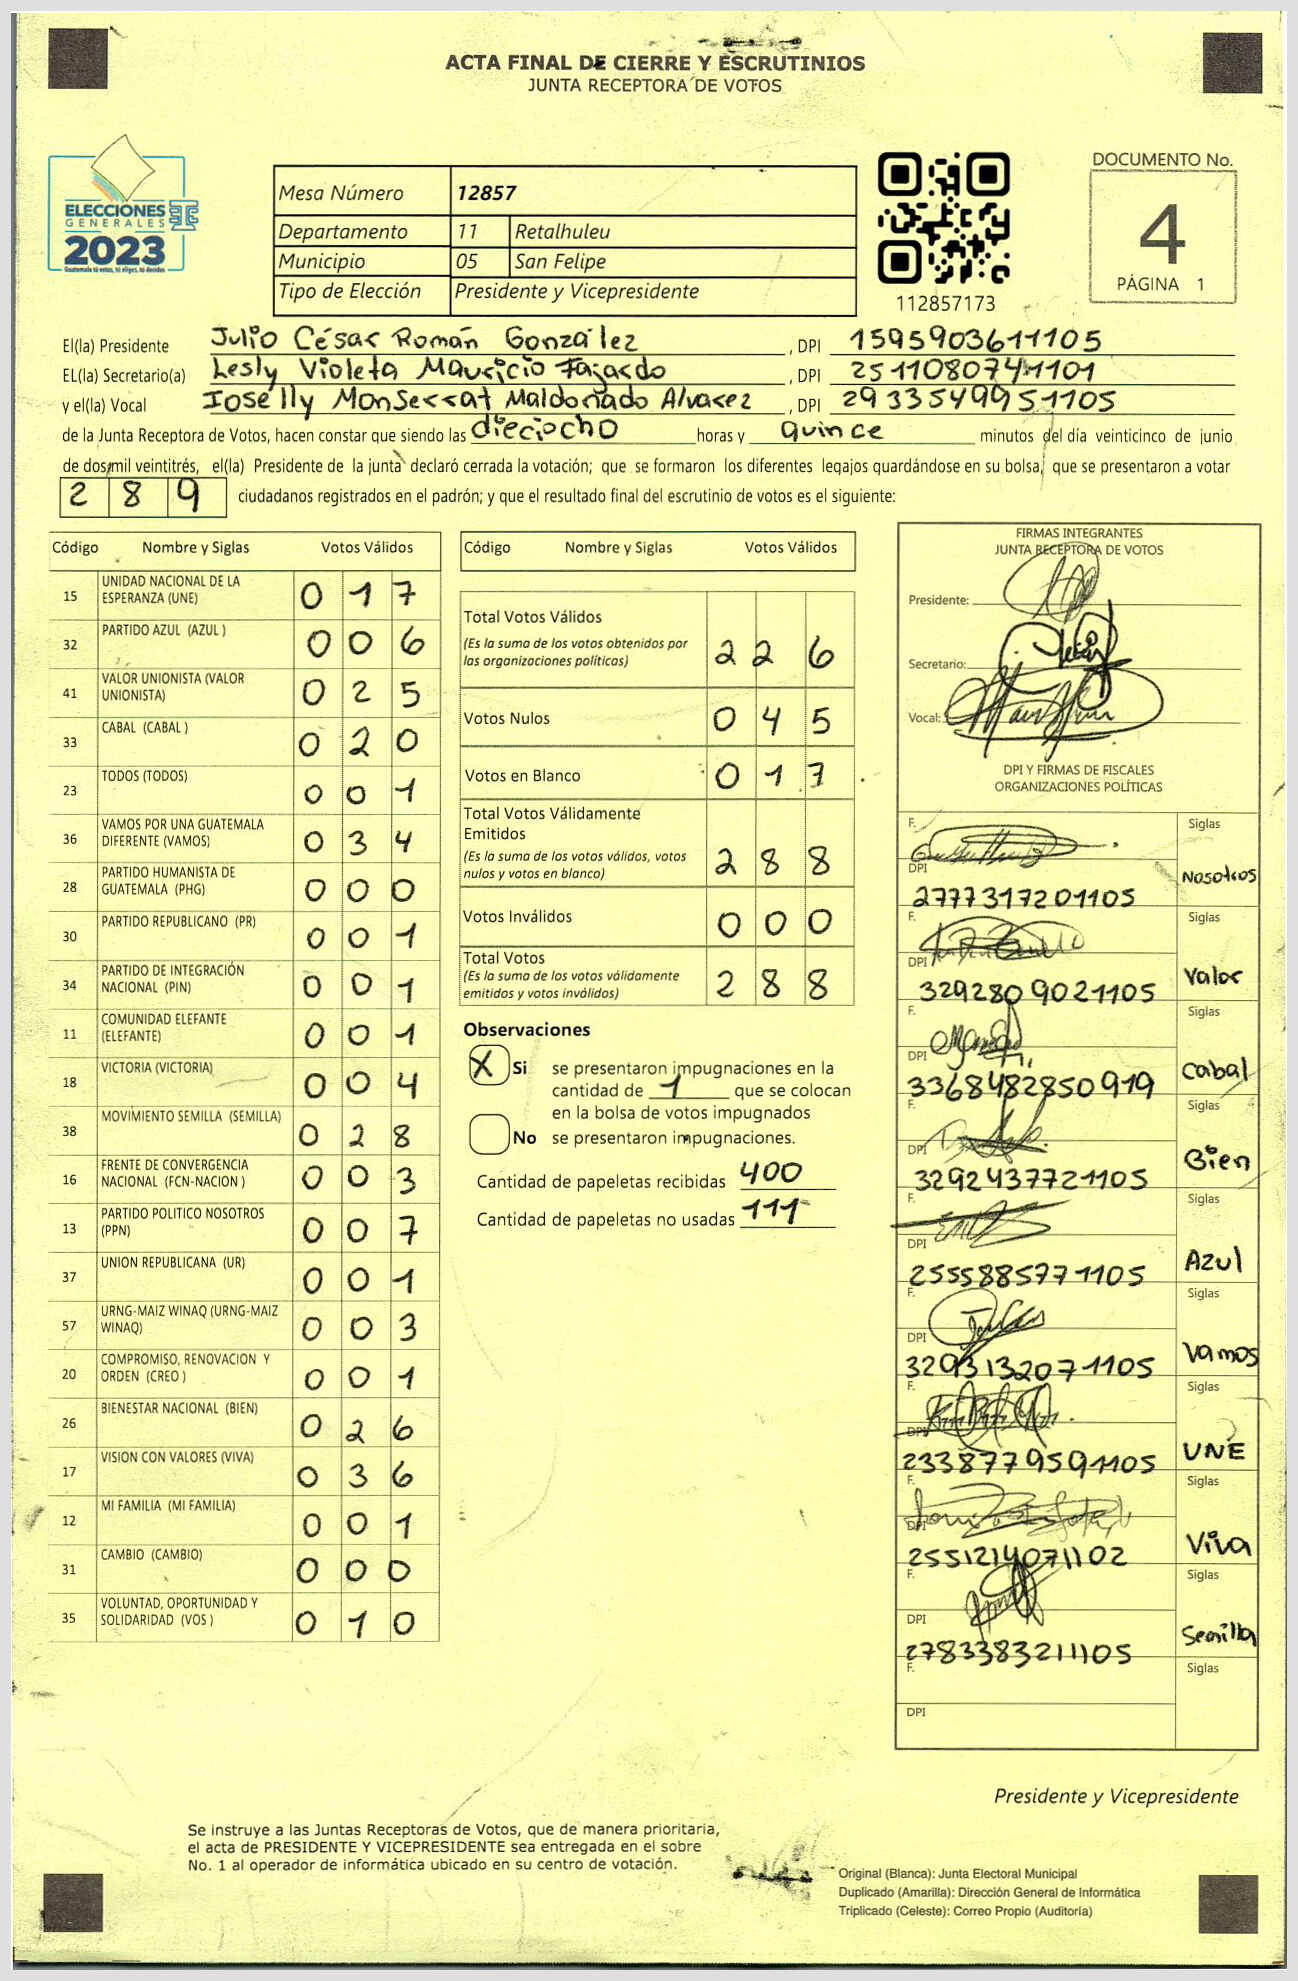 ACTA FINAL DE CIERRE Y ESCRUTINIOS
JUNTA RECEPTORA DE VOTOS
ELECCIONES
GENERALES
2023
Guatemala tú votas, tú eliges, tú decides
Mesa Número 12857
Departamento 11 Retalhuleu
Municipio 05 San Felipe
Tipo de Elección Presidente y Vicepresidente
112857173
DOCUMENTO No.
4
PÁGINA 1
El(la) Presidente Julio César Román González , DPI 1595903611105
EL(la) Secretario(a) Lesly Violeta Mauricio Fajardo , DPI 2511080741101
y el(la) Vocal Ioselly Monserrat Maldonado Alvarez , DPI 2933549951105
de la Junta Receptora de Votos, hacen constar que siendo las dieciocho horas y quince minutos del día veinticinco de junio
de dos mil veintitrés, el(la) Presidente de la junta declaró cerrada la votación; que se formaron los diferentes legajos guardándose en su bolsa, que se presentaron a votar
289 ciudadanos registrados en el padrón; y que el resultado final del escrutinio de votos es el siguiente:
Código Nombre y Siglas Votos Válidos
15 UNIDAD NACIONAL DE LA ESPERANZA (UNE) 017
32 PARTIDO AZUL (AZUL ) 006
41 VALOR UNIONISTA (VALOR UNIONISTA) 025
33 CABAL (CABAL ) 020
23 TODOS (TODOS) 001
36 VAMOS POR UNA GUATEMALA DIFERENTE (VAMOS) 034
28 PARTIDO HUMANISTA DE GUATEMALA (PHG) 000
30 PARTIDO REPUBLICANO (PR) 001
34 PARTIDO DE INTEGRACIÓN NACIONAL (PIN) 001
11 COMUNIDAD ELEFANTE (ELEFANTE) 001
18 VICTORIA (VICTORIA) 004
38 MOVIMIENTO SEMILLA (SEMILLA) 028
16 FRENTE DE CONVERGENCIA NACIONAL (FCN-NACION ) 003
13 PARTIDO POLITICO NOSOTROS (PPN) 007
37 UNION REPUBLICANA (UR) 001
57 URNG-MAIZ WINAQ (URNG-MAIZ WINAQ) 003
20 COMPROMISO, RENOVACION Y ORDEN (CREO ) 001
26 BIENESTAR NACIONAL (BIEN) 026
17 VISION CON VALORES (VIVA) 036
12 MI FAMILIA (MI FAMILIA) 001
31 CAMBIO (CAMBIO) 000
35 VOLUNTAD, OPORTUNIDAD Y SOLIDARIDAD (VOS ) 010
Código Nombre y Siglas Votos Válidos
Total Votos Válidos
(Es la suma de los votos obtenidos por las organizaciones políticas) 226
Votos Nulos 045
Votos en Blanco 017
Total Votos Válidamente Emitidos
(Es la suma de los votos válidos, votos nulos y votos en blanco) 288
Votos Inválidos 000
Total Votos
(Es la suma de los votos válidamente emitidos y votos inválidos) 288
Observaciones
X Si se presentaron impugnaciones en la
cantidad de 1 que se colocan
en la bolsa de votos impugnados
No se presentaron impugnaciones.
Cantidad de papeletas recibidas 400
Cantidad de papeletas no usadas 111
FIRMAS INTEGRANTES
JUNTA RECEPTORA DE VOTOS
Presidente:
Secretario:
Vocal:
DPI Y FIRMAS DE FISCALES
ORGANIZACIONES POLÍTICAS
F. Siglas
DPI 2777317201105 Nosotros
F. Siglas
DPI 3292809021105 Valor
F. Siglas
DPI 3368482850919 Cabal
F. Siglas
DPI 3292437721105 Bien
F. Siglas
DPI 2555885771105 Azul
F. Siglas
DPI 3293132071105 Vamos
F. Siglas
DPI 2338779591105 UNE
F. Siglas
DPI 2551214071102 Viva
F. Siglas
DPI 2783383211105 Semilla
F. Siglas
DPI
Presidente y Vicepresidente
Se instruye a las Juntas Receptoras de Votos, que de manera prioritaria,
el acta de PRESIDENTE Y VICEPRESIDENTE sea entregada en el sobre
No. 1 al operador de informática ubicado en su centro de votación.
Original (Blanca): Junta Electoral Municipal
Duplicado (Amarilla): Dirección General de Informática
Triplicado (Celeste): Correo Propio (Auditoría)